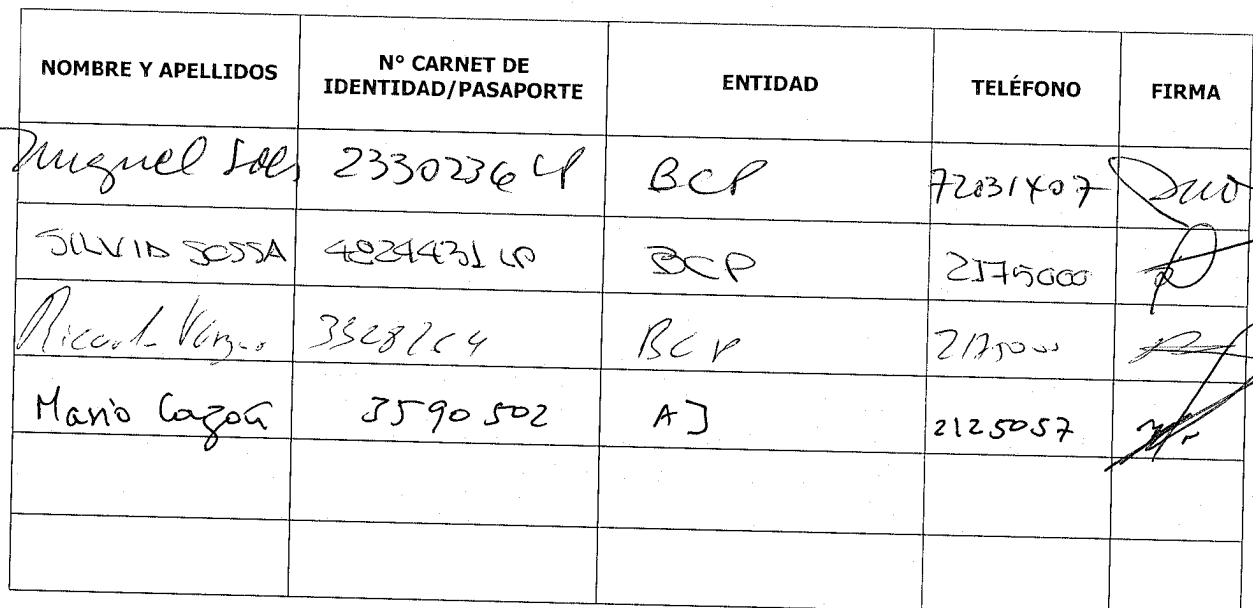 NOMBRE Y APELLIDOS
N° CARNET DE IDENTIDAD/PASAPORTE
ENTIDAD
TELÉFONO
FIRMA
Miguel 2330236 LP BCP 72031407
SILVIA SOSSA 4824431 LP BCP 2175000
Ricardo Vargas BCP 2175000
Mario 3590502 AJ 2125057